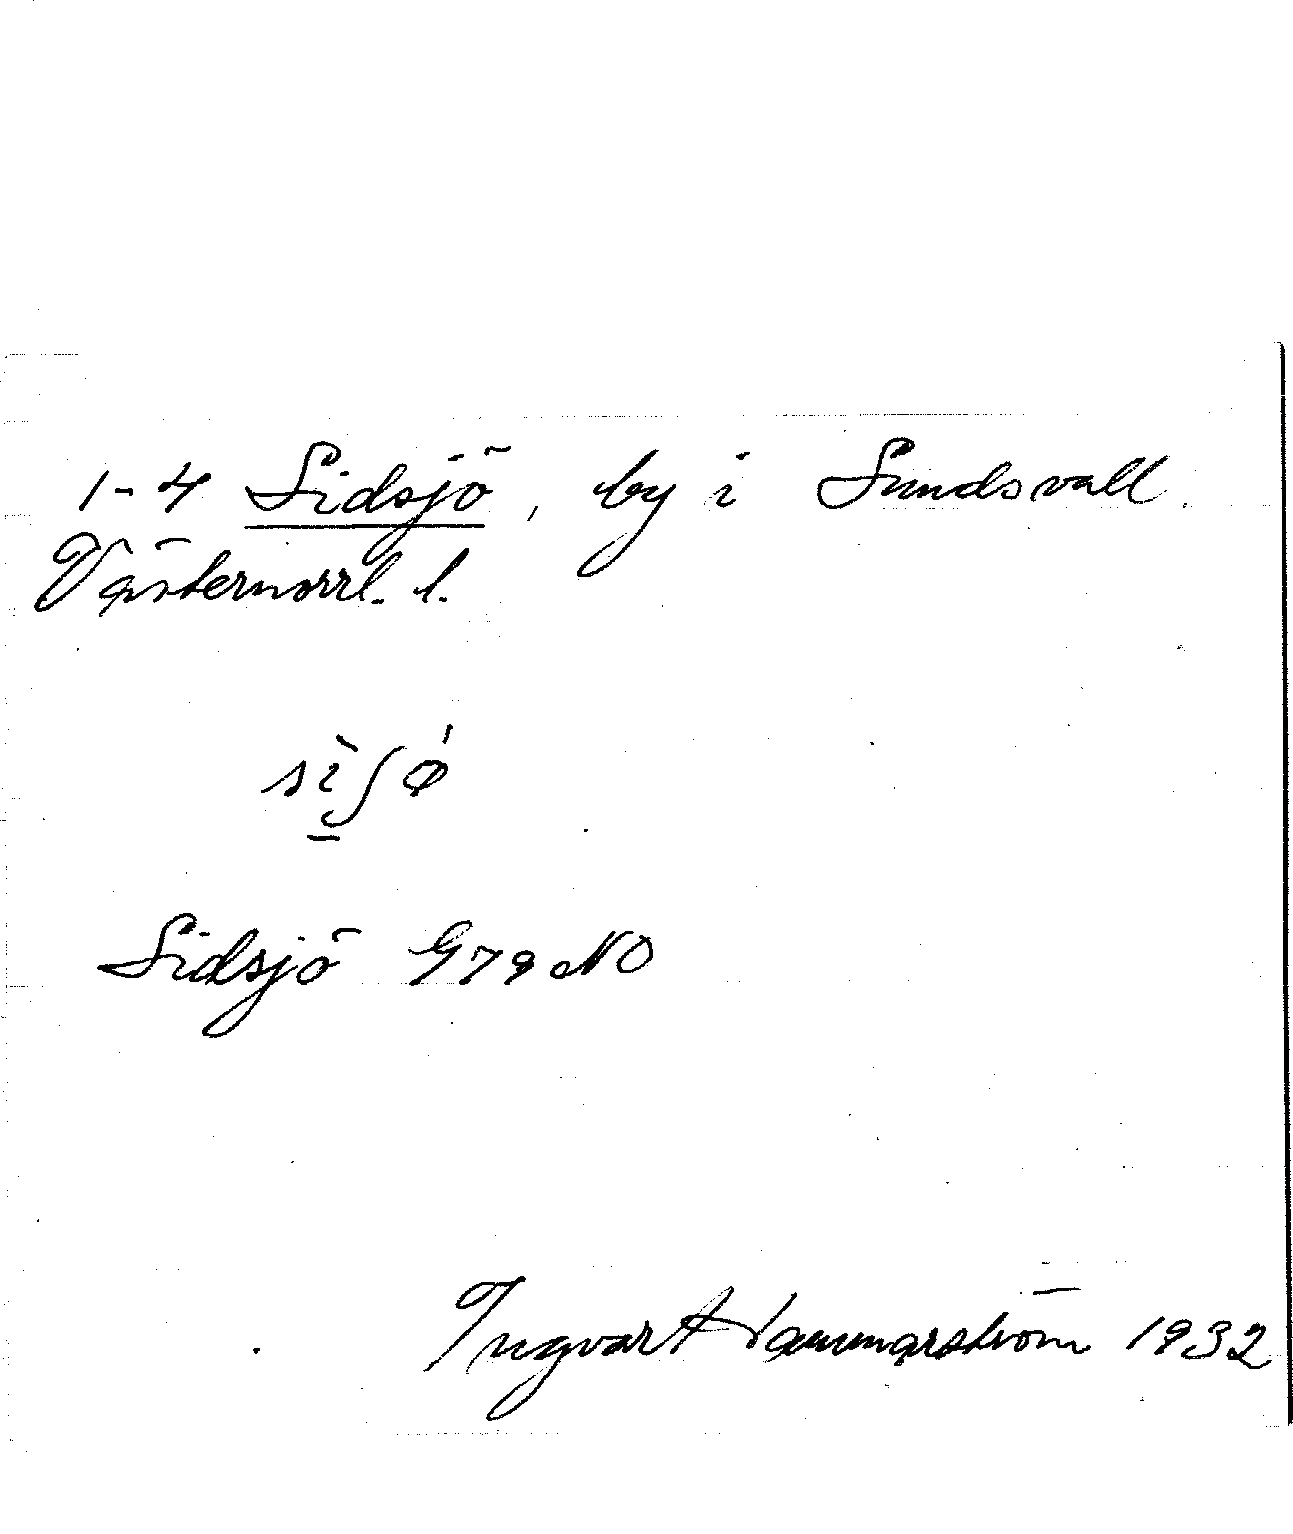 1-4 Sidsjö, by i Sundsvall
Västernorrl. l.
sì̱ʃǿ
Sidsjö G79 NO
Ingvar Hammarström 1932